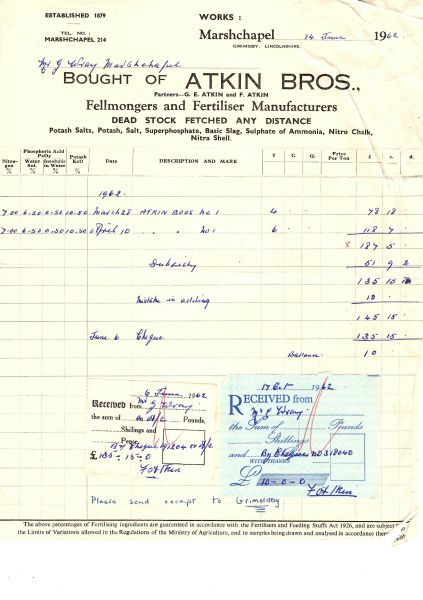 ESTABLISHED 1879
WORKS:
TEL. NO.:
MARSHCHAPEL 214
Marshchapel 14 June 1962
GRIMSBY, LINCOLNSHIRE.
Mr G Wray Marshchapel
BOUGHT OF ATKIN BROS.,
Partners—G. E. ATKIN and F. ATKIN
Fellmongers and Fertiliser Manufacturers
DEAD STOCK FETCHED ANY DISTANCE
Potash Salts, Potash, Salt, Superphosphate, Basic Slag, Sulphate of Ammonia, Nitro Chalk,
Nitra Shell.
Nitrogen % Phosphoric Acid P2O5 Water Sol. % Insoluble in Water % Potash K2O % Date DESCRIPTION AND MARK T C. Q. Price Per Ton £ s. d.
1962.
7.00 6.50 0.50 10.50 March 28 ATKIN BROS No 1 4 . . 78 18 .
7.00 6.50 0.50 10.50 April 10 " " No 1 6 . . 118 7 .
x 187 5 .
Subsidy 51 9 2
135 15 10
Mistake in adding 10 .
145 15 .
June 6 Cheque 135 15 .
Ballance. 10
6 June 1962
Received from Mr G Wray
the sum of on A/c Pounds,
Shillings and
Pence.
By Cheque
£ 135-15-0
F Atkin
17 Oct 1962
RECEIVED from
Mr G Wray.
the Sum of Pounds
Shillings
and By Cheque NO 318040
WITH THANKS
£ 10-0-0
F Atkin
Please send receipt to Grimoldby
The above percentages of Fertilising ingredients are guaranteed in accordance with the Fertilisers and Feeding Stuffs Act 1926, and are subject
the Limits of Variations allowed in the Regulations of the Ministry of Agriculture, and to samples being drawn and analysed in accordance